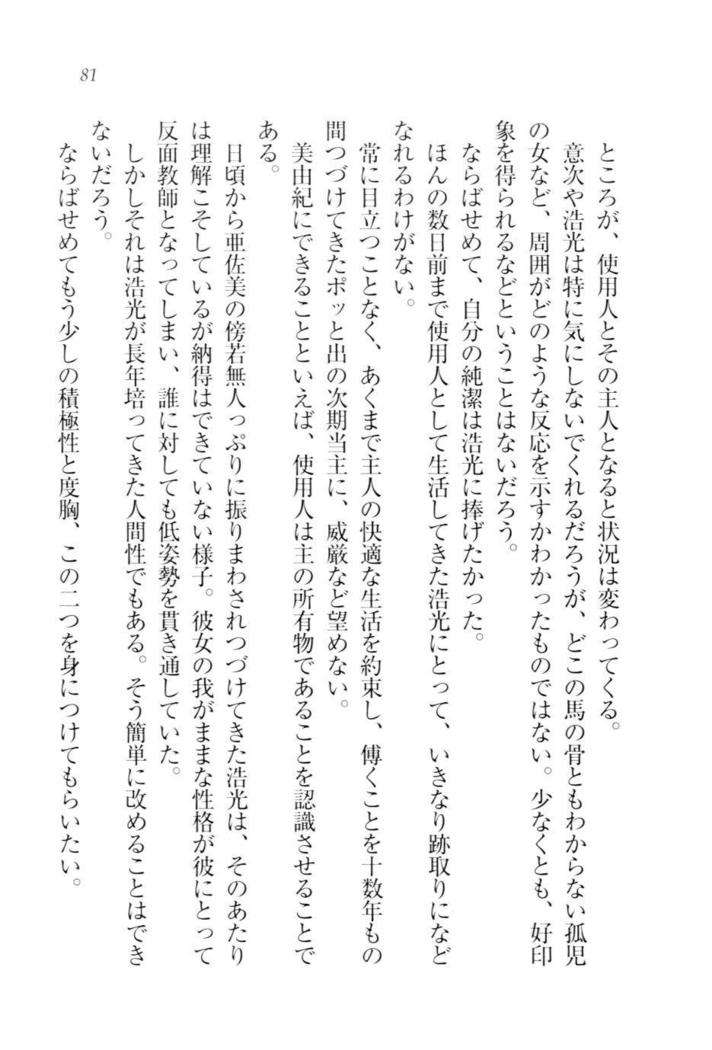 81
ところが、使用人とその主人となると状況は変わってくる。
意次や浩光は特に気にしないでくれるだろうが、どこの馬の骨ともわからない孤児
の女など、周囲がどのような反応を示すかわかったものではない。少なくとも、好印
象を得られるなどということはないだろう。
ならばせめて、自分の純潔は浩光に捧げたかった。
ほんの数日前まで使用人として生活してきた浩光にとって、いきなり跡取りになど
なれるわけがない。
常に目立つことなく、あくまで主人の快適な生活を約束し、傅くことを十数年もの
間つづけてきたポッと出の次期当主に、威厳など望めない。
美由紀にできることといえば、使用人は主の所有物であることを認識させることで
ある。
日頃から亜佐美の傍若無人っぷりに振りまわされつづけてきた浩光は、そのあたり
は理解こそしているが納得はできていない様子。彼女の我がままな性格が彼にとって
反面教師となってしまい、誰に対しても低姿勢を貫き通していた。
しかしそれは浩光が長年培ってきた人間性でもある。そう簡単に改めることはでき
ないだろう。
ならばせめてもう少しの積極性と度胸、この二つを身につけてもらいたい。